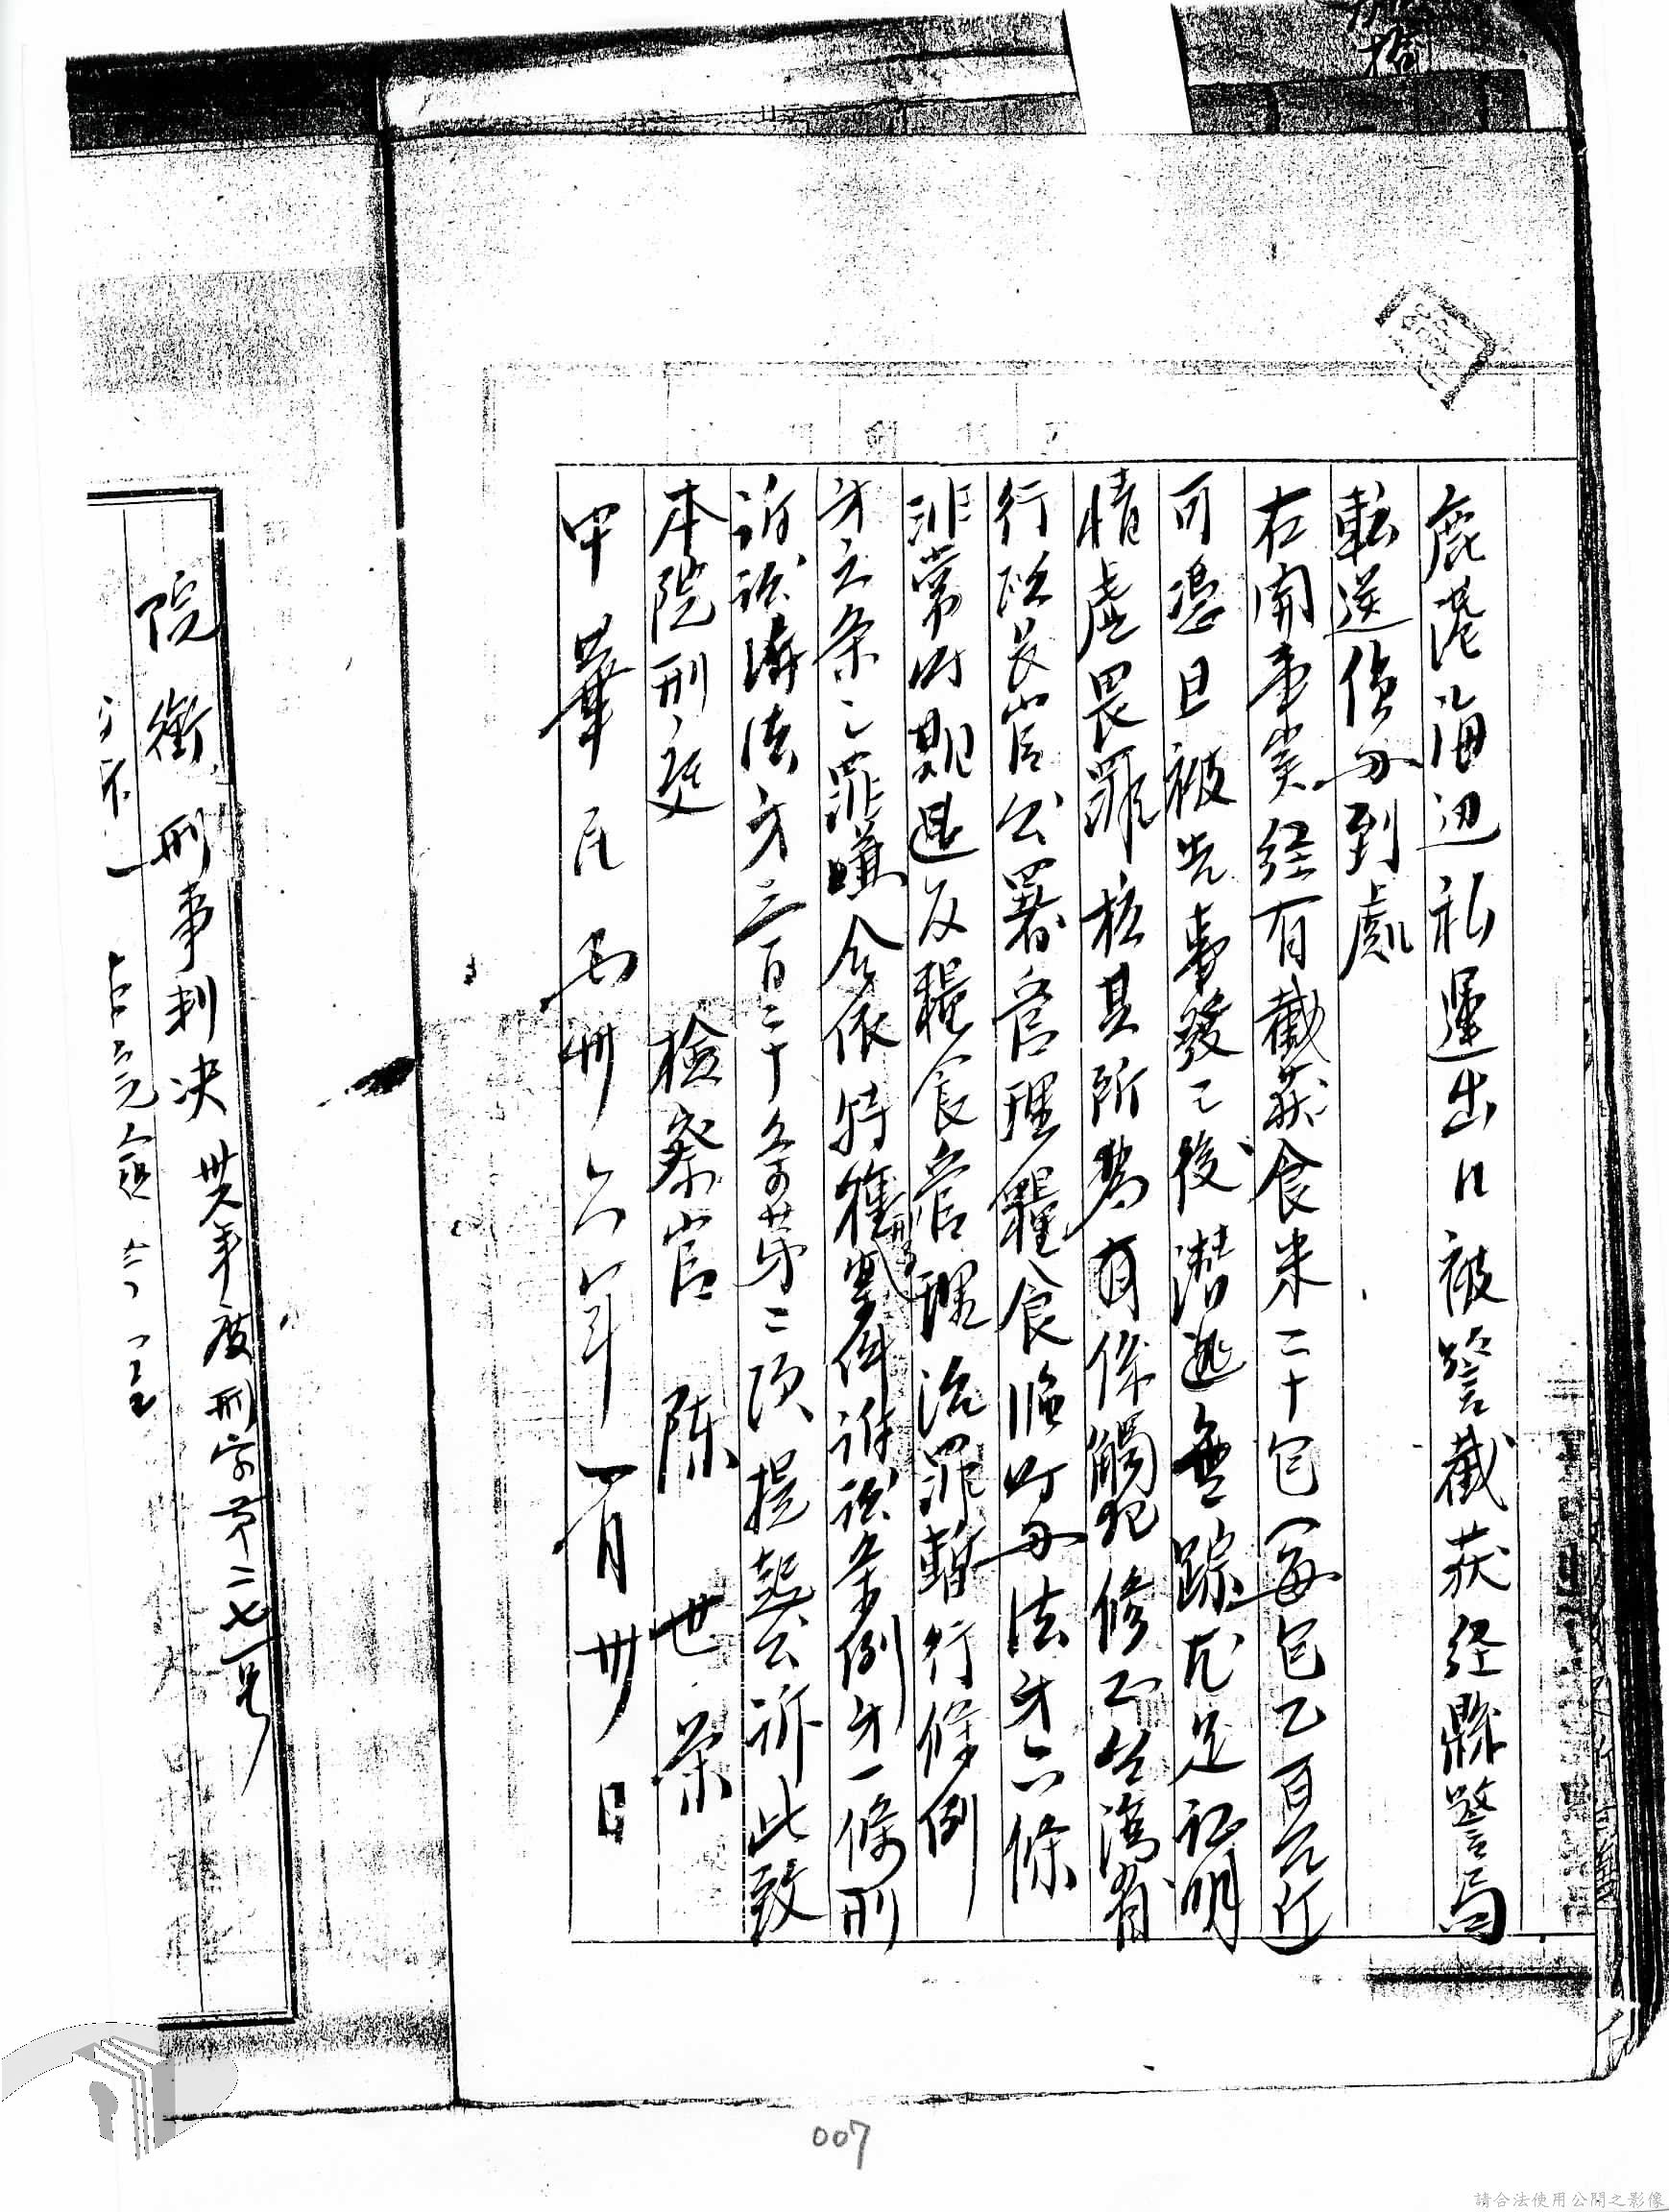 鹿港海边私運出口被警截获经縣警局
転送偵办到處
右開事实经有截获食米二十包(每包乙百公斤
可憑且被告事發之後潛逃無踪尤足证明
情虚畏罪核其所為有係觸犯修正台湾省
行政长官公署管理糧食临时办法才六條
非常时期違反糧食管理治罪暫行條例
才六条之罪嫌合依特種刑事案件訴訟条例才一條刑
訴訟法才三百二十条第二项提起公訴此致
本院刑庭
检察官 陈世荣
中華民國卅六年一月卅日
院銜刑事判决 卅六年度刑字第二七号
007
請合法使用公開之影像